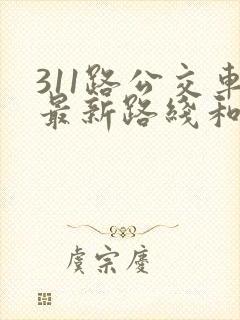 311路公交车
最新路线和
虞宗庆